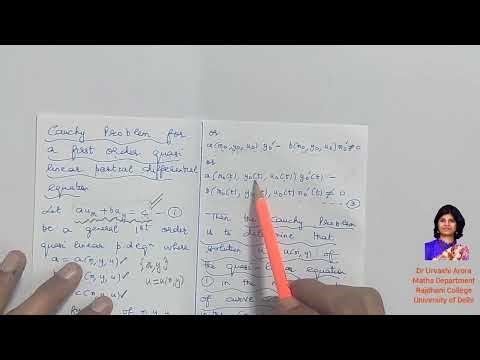 Cauchy Problem for
a first order quasi
linear partial differential
equation
Let aux + buy = c — ①
be a general 1st order
quasi linear p.d eqn where
a = a(x, y, u) ✓
(x, y, u) ✓
c(x, y, u) ✓
{x, y}
u = u(x, y)
or
a(x0, y0, u0) y0' − b(x0, y0, u0) x0' ≠ 0
or
a(x0(t), y0(t), u0(t)) y0'(t) −
b(x0(t), y0(t), u0(t)) x0'(t) ≠ 0
②
Then the Cauchy Problem
is to determine that
solution u = u(x, y) of
the quasi-linear equation
① in the
of curve
Dr Urvashi Arora
Maths Department
Rajdhani College
University of Delhi